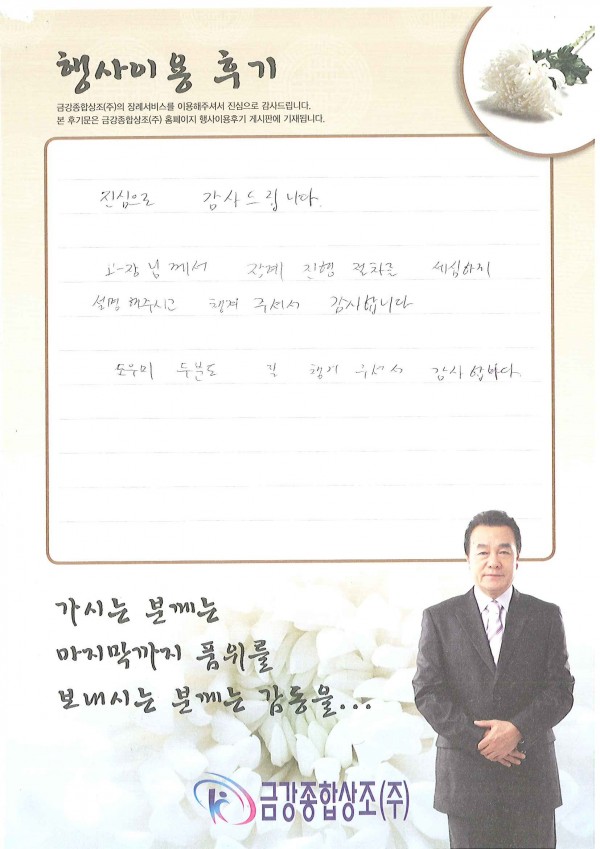 행사이용 후기
금강종합상조(주)의 장례서비스를 이용해주셔서 진심으로 감사드립니다.
본 후기문은 금강종합상조(주) 홈페이지 행사이용후기 게시판에 기재됩니다.
진심으로 감사드립니다.
님께서 장례 진행 절차를 세심하게
설명해주시고 챙겨 주셔서 감사합니다
도우미 두분도 잘 챙겨 주셔서 감사합니다.
가시는 분께는
마지막까지 품위를
보내시는 분께는 감동을...
금강종합상조(주)